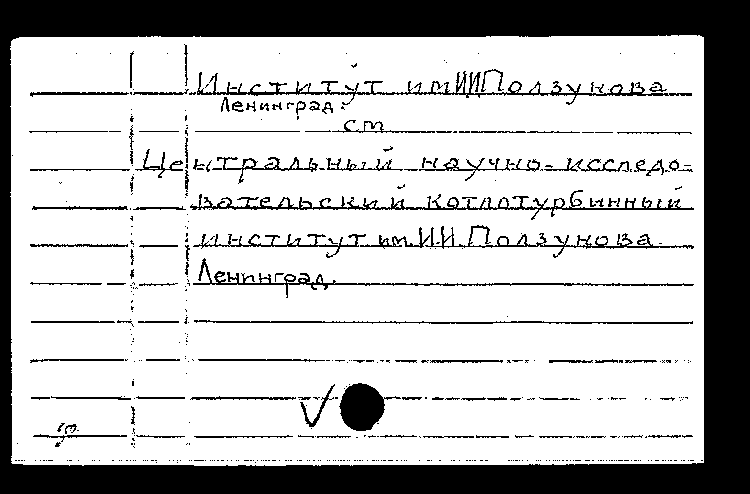 Институт им И.И. Ползунова
Ленинград.
см
Центральный научно-исследо-
вательский котлотурбинный
институт им. И.И. Ползунова.
Ленинград.